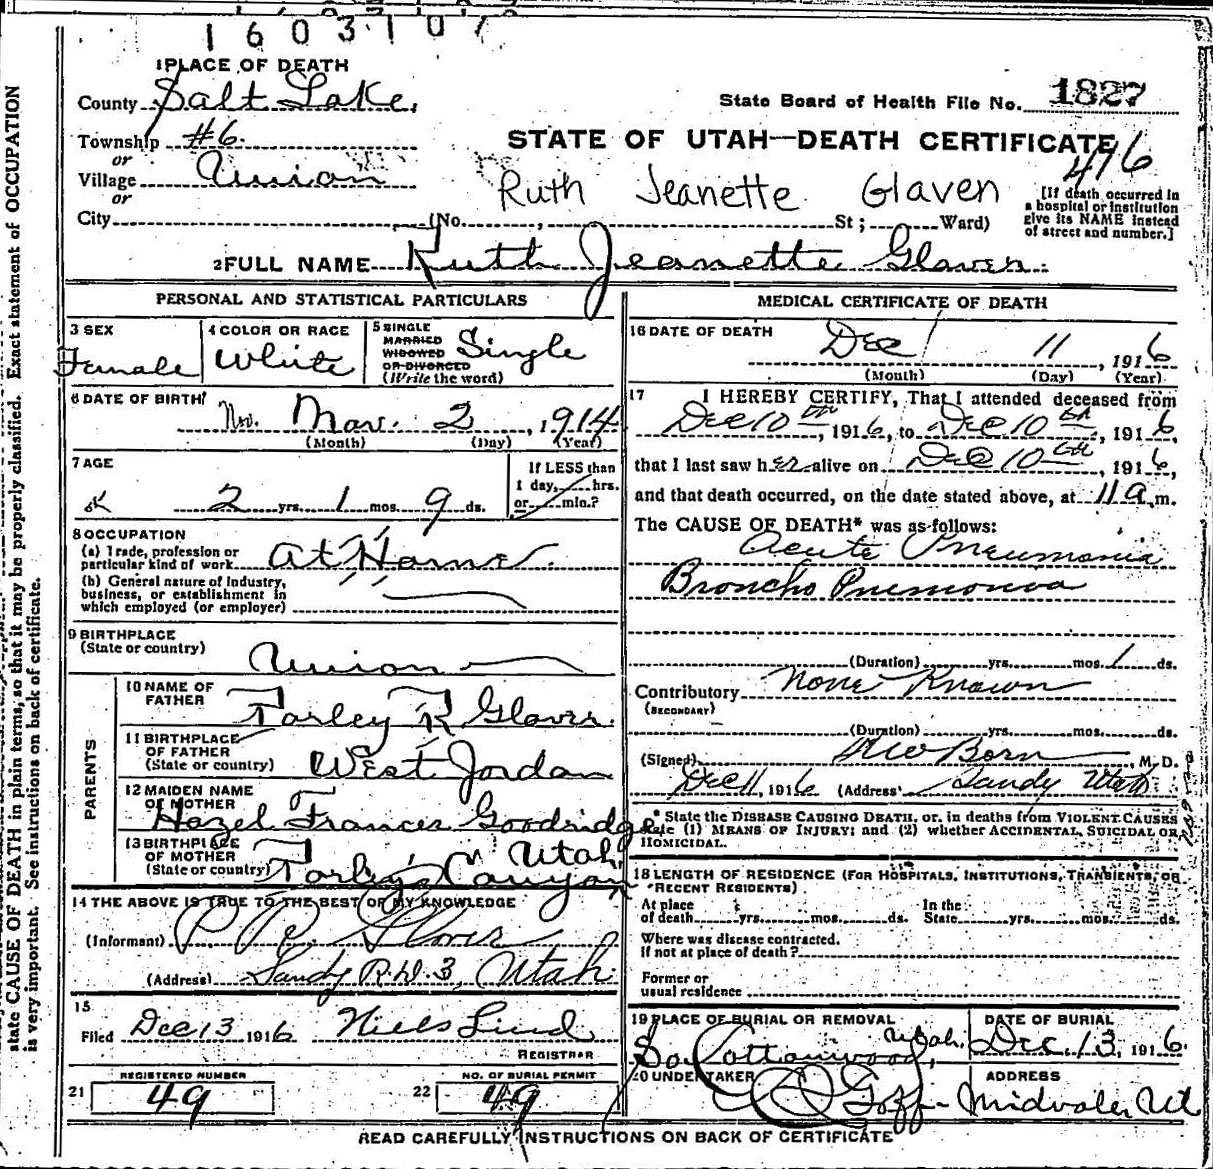 1603107
1 PLACE OF DEATH
County Salt Lake,
State Board of Health File No. 1827
Township #6.
STATE OF UTAH—DEATH CERTIFICATE
or
476
Village Union
Ruth Jeanette Glaven
or
City (No. , St ; Ward)
[If death occurred in a hospital or institution give its NAME instead of street and number.]
2 FULL NAME Ruth Jeanette Glaven.
PERSONAL AND STATISTICAL PARTICULARS
3 SEX
Female
4 COLOR OR RACE
White
5 SINGLE
MARRIED
WIDOWED
OR DIVORCED
(Write the word)
Single
6 DATE OF BIRTH
Nov. Mar. 2, 1914
(Month) (Day) (Year)
7 AGE
2 yrs. 1 mos. 9 ds.
If LESS than
1 day, hrs.
or min.?
8 OCCUPATION
(a) Trade, profession or
particular kind of work At Home.
(b) General nature of Industry,
business, or establishment in
which employed (or employer)
9 BIRTHPLACE
(State or country)
Union
PARENTS
10 NAME OF
FATHER
Farley R Glover.
11 BIRTHPLACE
OF FATHER
(State or country) West Jordan
12 MAIDEN NAME
OF MOTHER
Hazel Frances Goodridge
13 BIRTHPLACE
OF MOTHER
(State or country) Farley's Canyon Utah
14 THE ABOVE IS TRUE TO THE BEST OF MY KNOWLEDGE
(Informant) P. R. Glover
(Address) Sandy R.D. 3, Utah
15
Filed Dec 13 1916 Niels Lind
REGISTRAR
REGISTERED NUMBER
21 49
NO. OF BURIAL PERMIT
22 49
MEDICAL CERTIFICATE OF DEATH
16 DATE OF DEATH
Dec 11, 1916
(Month) (Day) (Year)
17 I HEREBY CERTIFY, That I attended deceased from
Dec 10th, 1916, to Dec 10th, 1916,
that I last saw her alive on Dec 10th, 1916,
and that death occurred, on the date stated above, at 11 a m.
The CAUSE OF DEATH* was as follows:
Acute Pneumonia
Broncho Pnemonia
(Duration) yrs. mos. 1 ds.
Contributory None Known
(SECONDARY)
(Duration) yrs. mos. ds.
(Signed) Born, M. D.
Dec 11, 1916 (Address) Sandy Utah
* State the DISEASE CAUSING DEATH, or, in deaths from VIOLENT CAUSES
state (1) MEANS OF INJURY; and (2) whether ACCIDENTAL, SUICIDAL OR
HOMICIDAL.
18 LENGTH OF RESIDENCE (FOR HOSPITALS, INSTITUTIONS, TRANSIENTS, OR
RECENT RESIDENTS)
At place
of death yrs. mos. ds.
In the
State yrs. mos. ds.
Where was disease contracted.
If not at place of death?
Former or
usual residence
19 PLACE OF BURIAL OR REMOVAL
So. Cottonwood, Utah.
DATE OF BURIAL
Dec. 13, 1916.
20 UNDERTAKER
Goff
ADDRESS
Midvale, Ut
READ CAREFULLY INSTRUCTIONS ON BACK OF CERTIFICATE
state CAUSE OF DEATH in plain terms, so that it may be properly classified. Exact statement of OCCUPATION
is very important. See instructions on back of certificate.